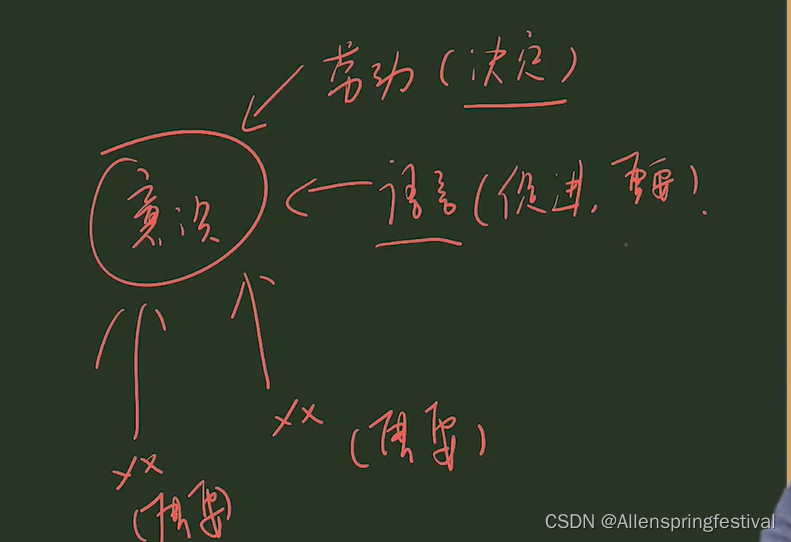 劳动(决定)
意识
语言(促进,重要).
xx
(重要)
xx
(重要)
CSDN @Allenspringfestival